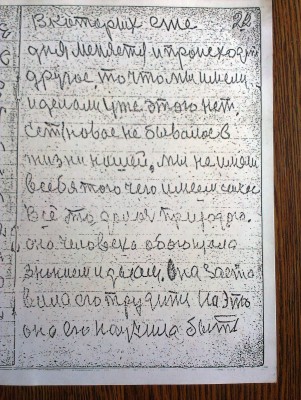 в которых сие 22
дня меняется и происходит
другое, то что мы имели
и делали уже этого нет.
Есть новое не бывалое в
жизни нашей, мы не имели
в себя того чего имеем сейчас
Всё это дело природы.
она человека обогащала
знанием и делам, она заста
вила его трудится на это
она его научила быть